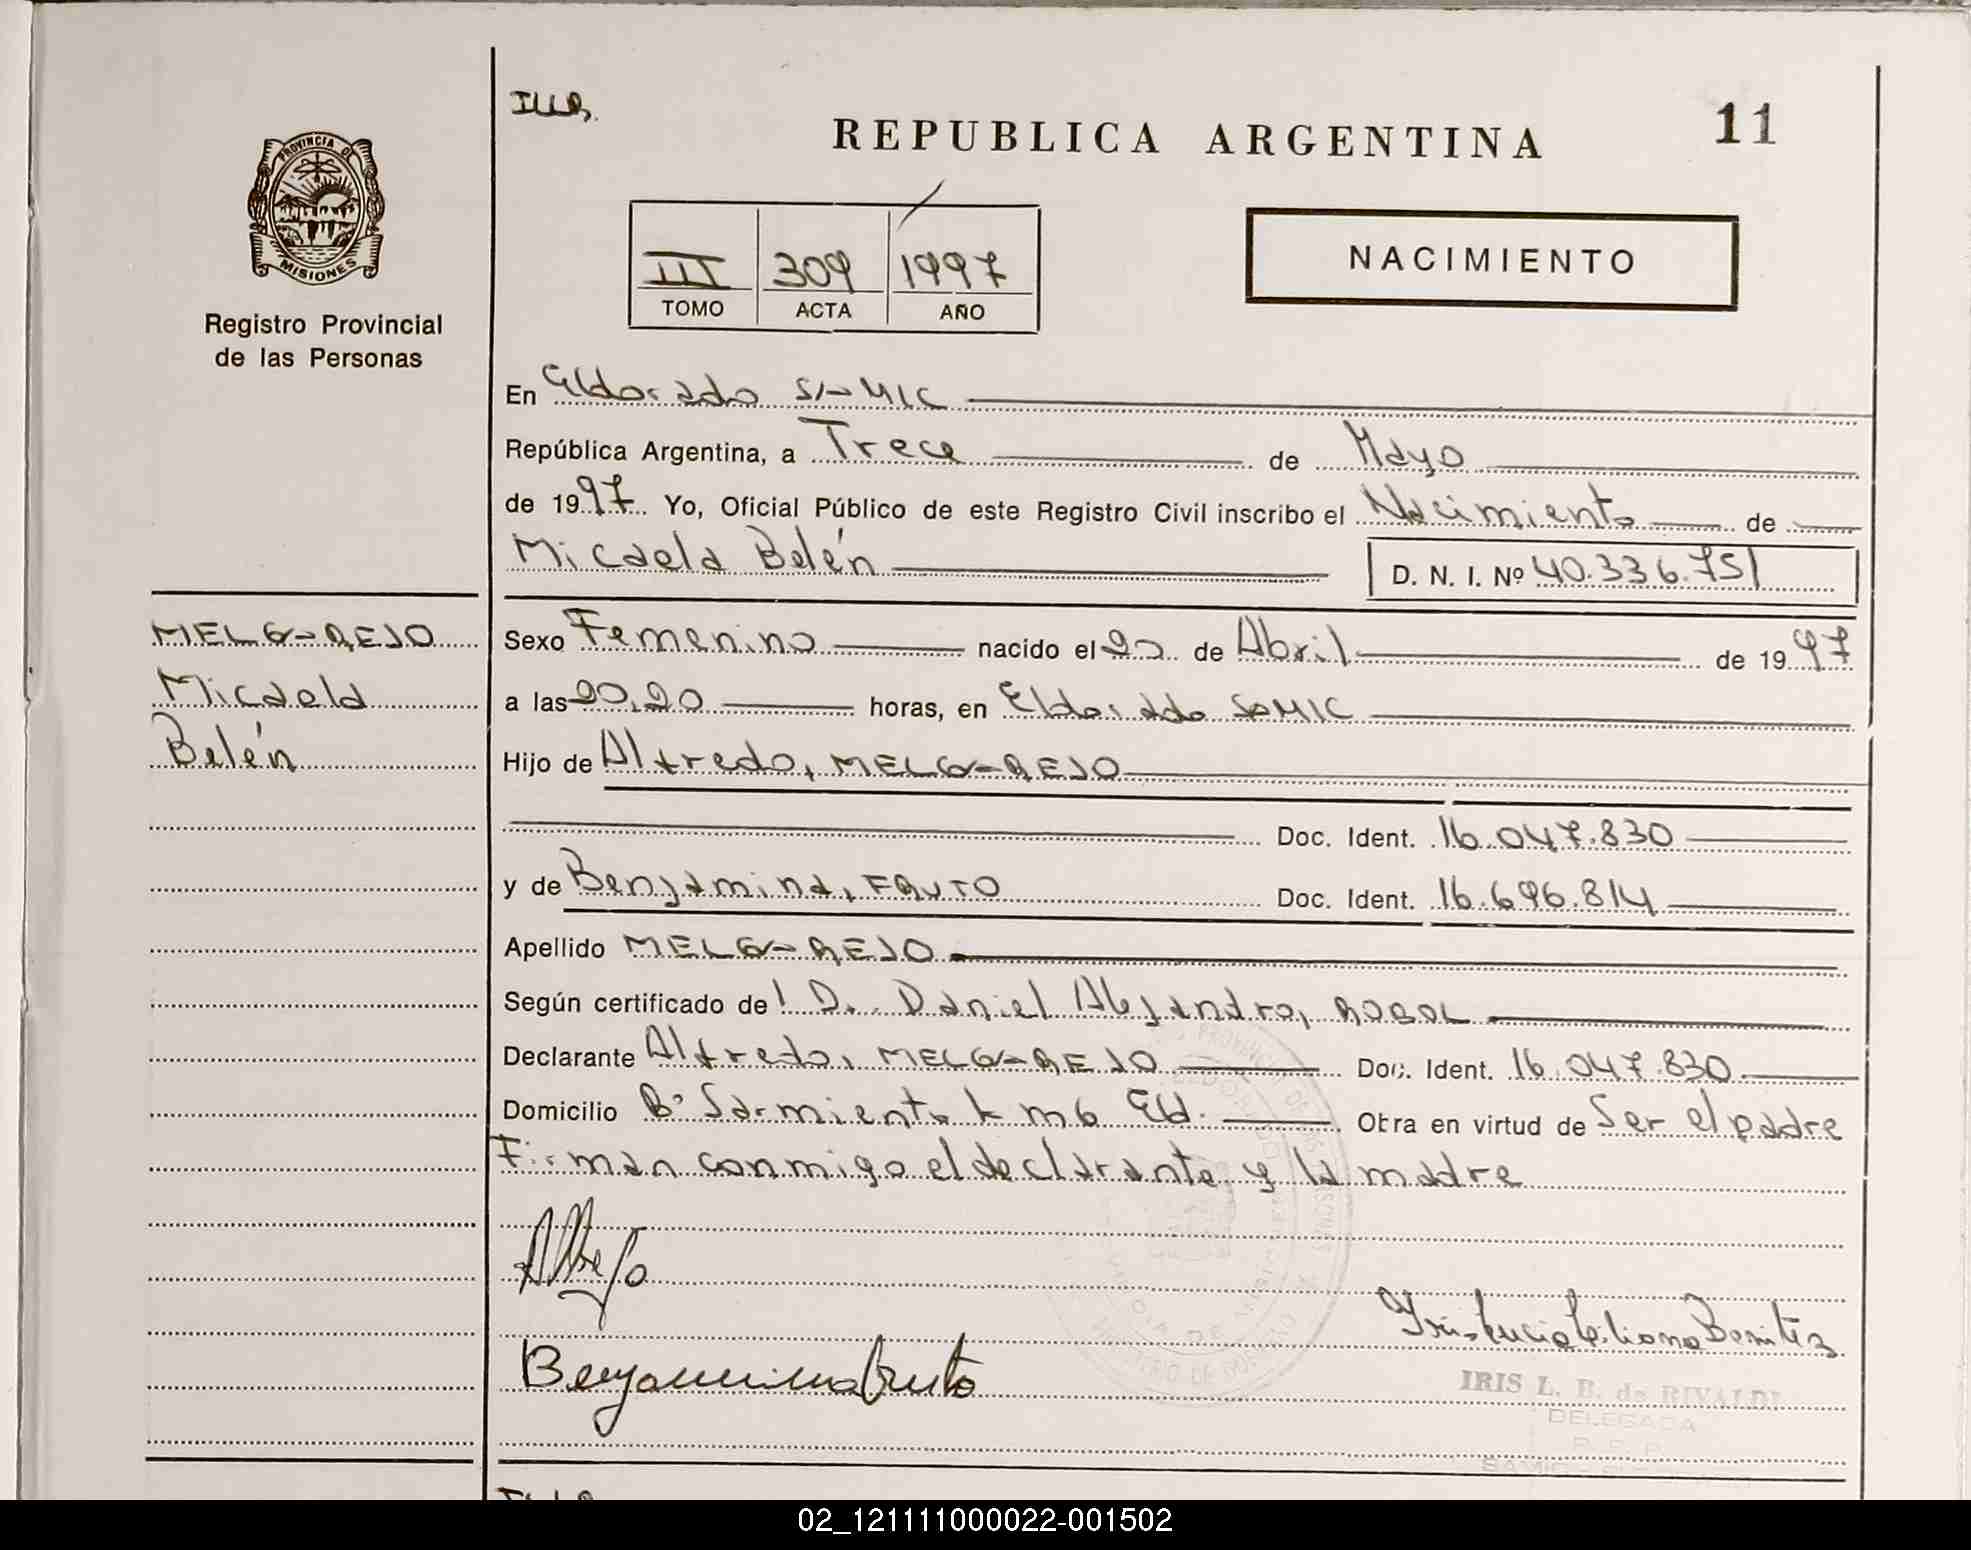 ILLB.
REPUBLICA ARGENTINA
11
PROVINCIA DE
MISIONES
Registro Provincial
de las Personas
III 309 1997
TOMO ACTA AÑO
NACIMIENTO
En Eldorado S/-MIC
República Argentina, a Trece de Mayo
de 1997. Yo, Oficial Público de este Registro Civil inscribo el Nacimiento de
Micaela Belén D. N. I. Nº 40.336.751
MELGAREJO
Micaela
Belén
Sexo Femenino nacido el 20 de Abril de 1997
a las 20,20 horas, en Eldorado SAMIC
Hijo de Alfredo, MELGAREJO
Doc. Ident. 16.047.830
y de Benjamina, FRUTO Doc. Ident. 16.696.814
Apellido MELGAREJO
Según certificado de: Dr. Daniel Alejandro, ROBOL
Declarante Alfredo, MELGAREJO Doc. Ident. 16.047.830
Domicilio Bº Sarmiento km 6 Eld. Obra en virtud de Ser el padre
Firman conmigo el declarante y la madre
Benjamina Fruto
Iris Lucia Liliana Benitez
IRIS L. B. de RIVALDI
DELEGADA
R. P. P.
02_121111000022-001502